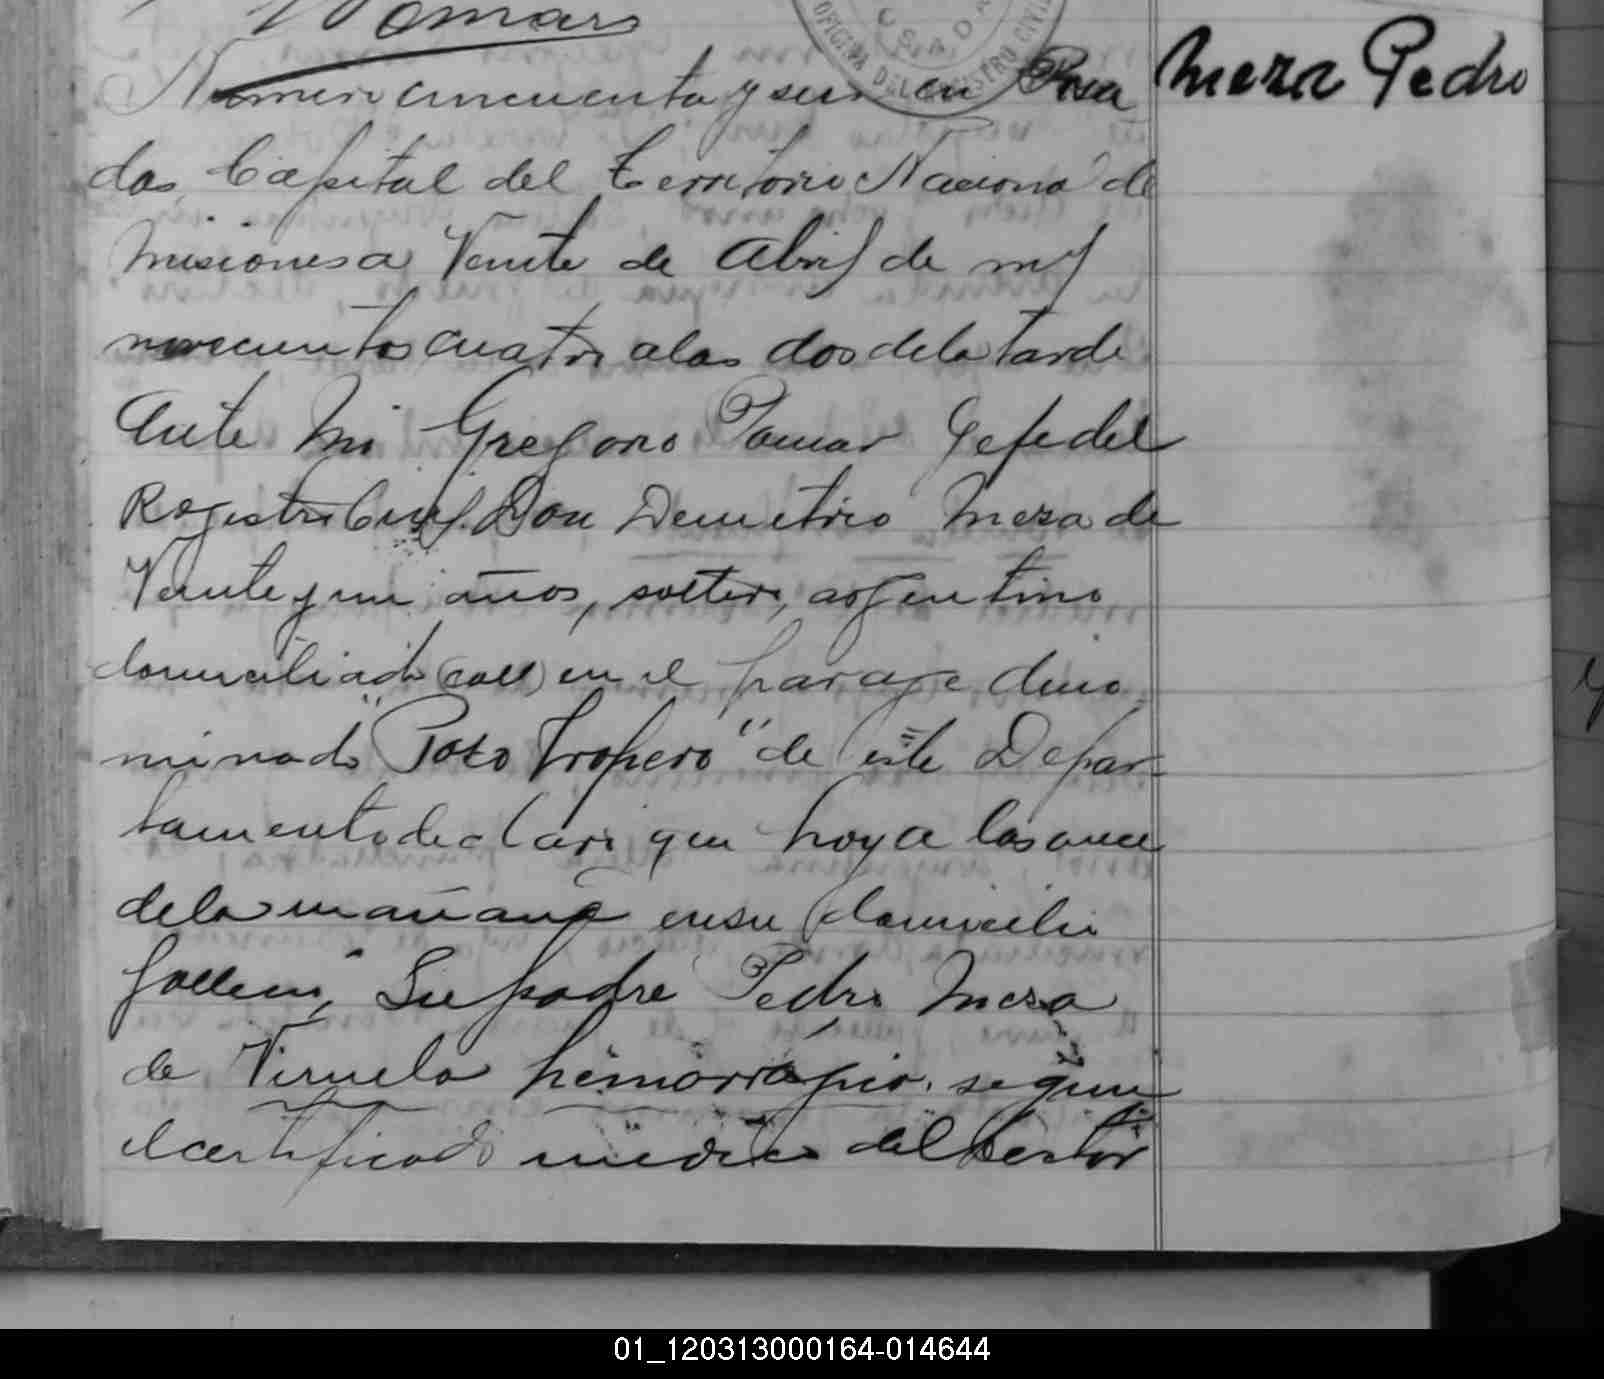 Pomar
OFICINA DEL REGISTRO CIVIL
Numero cincuenta y seis en Posa
Meza Pedro
das, Capital del Territorio Nacional de
Misiones a Veinte de Abril de mil
novecientos cuatro a las dos de la tarde
Ante Mi Gregorio Pomar Gefe del
Registro Civil, Don Demetrio Meza de
Veinte y un años, soltero, argentino
domiciliado (call) en el paraje deno
minado "Poso Tropero" de este Depar-
tamento declaró que hoy a las once
de la mañana en su domicilio
falleció, Su padre Pedro Meza
de Viruela hemorrágica, segun
el certificado medico del Doctor
01_120313000164-014644